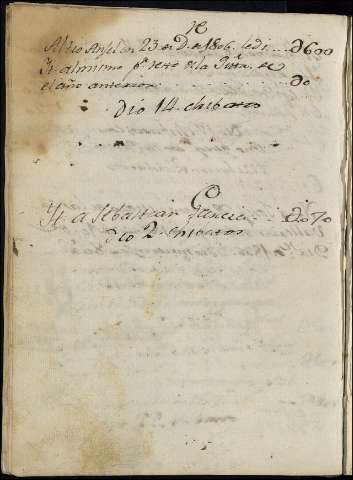 Al tio Anselm en 23 de D. de 1806. le di ... d600
It. al mismo pr. resto de la Quta. de
el año anterior ... do
dio 14 chibatos
It. a Sebastian Garcia ... do70
dio 2 chibatos